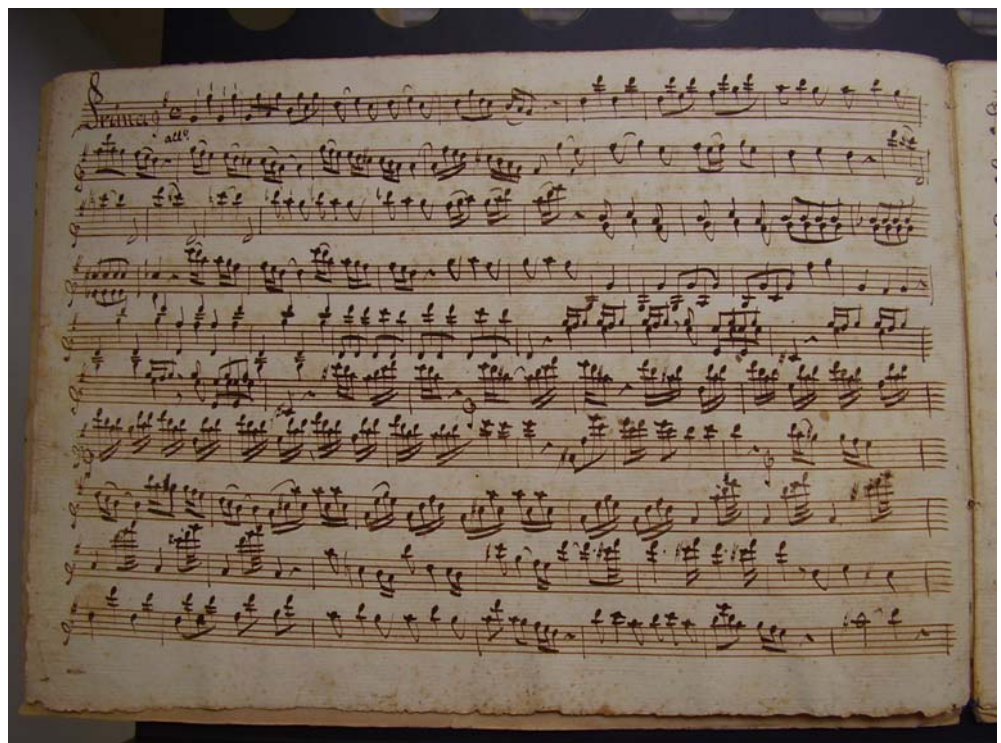 Prima
all.º